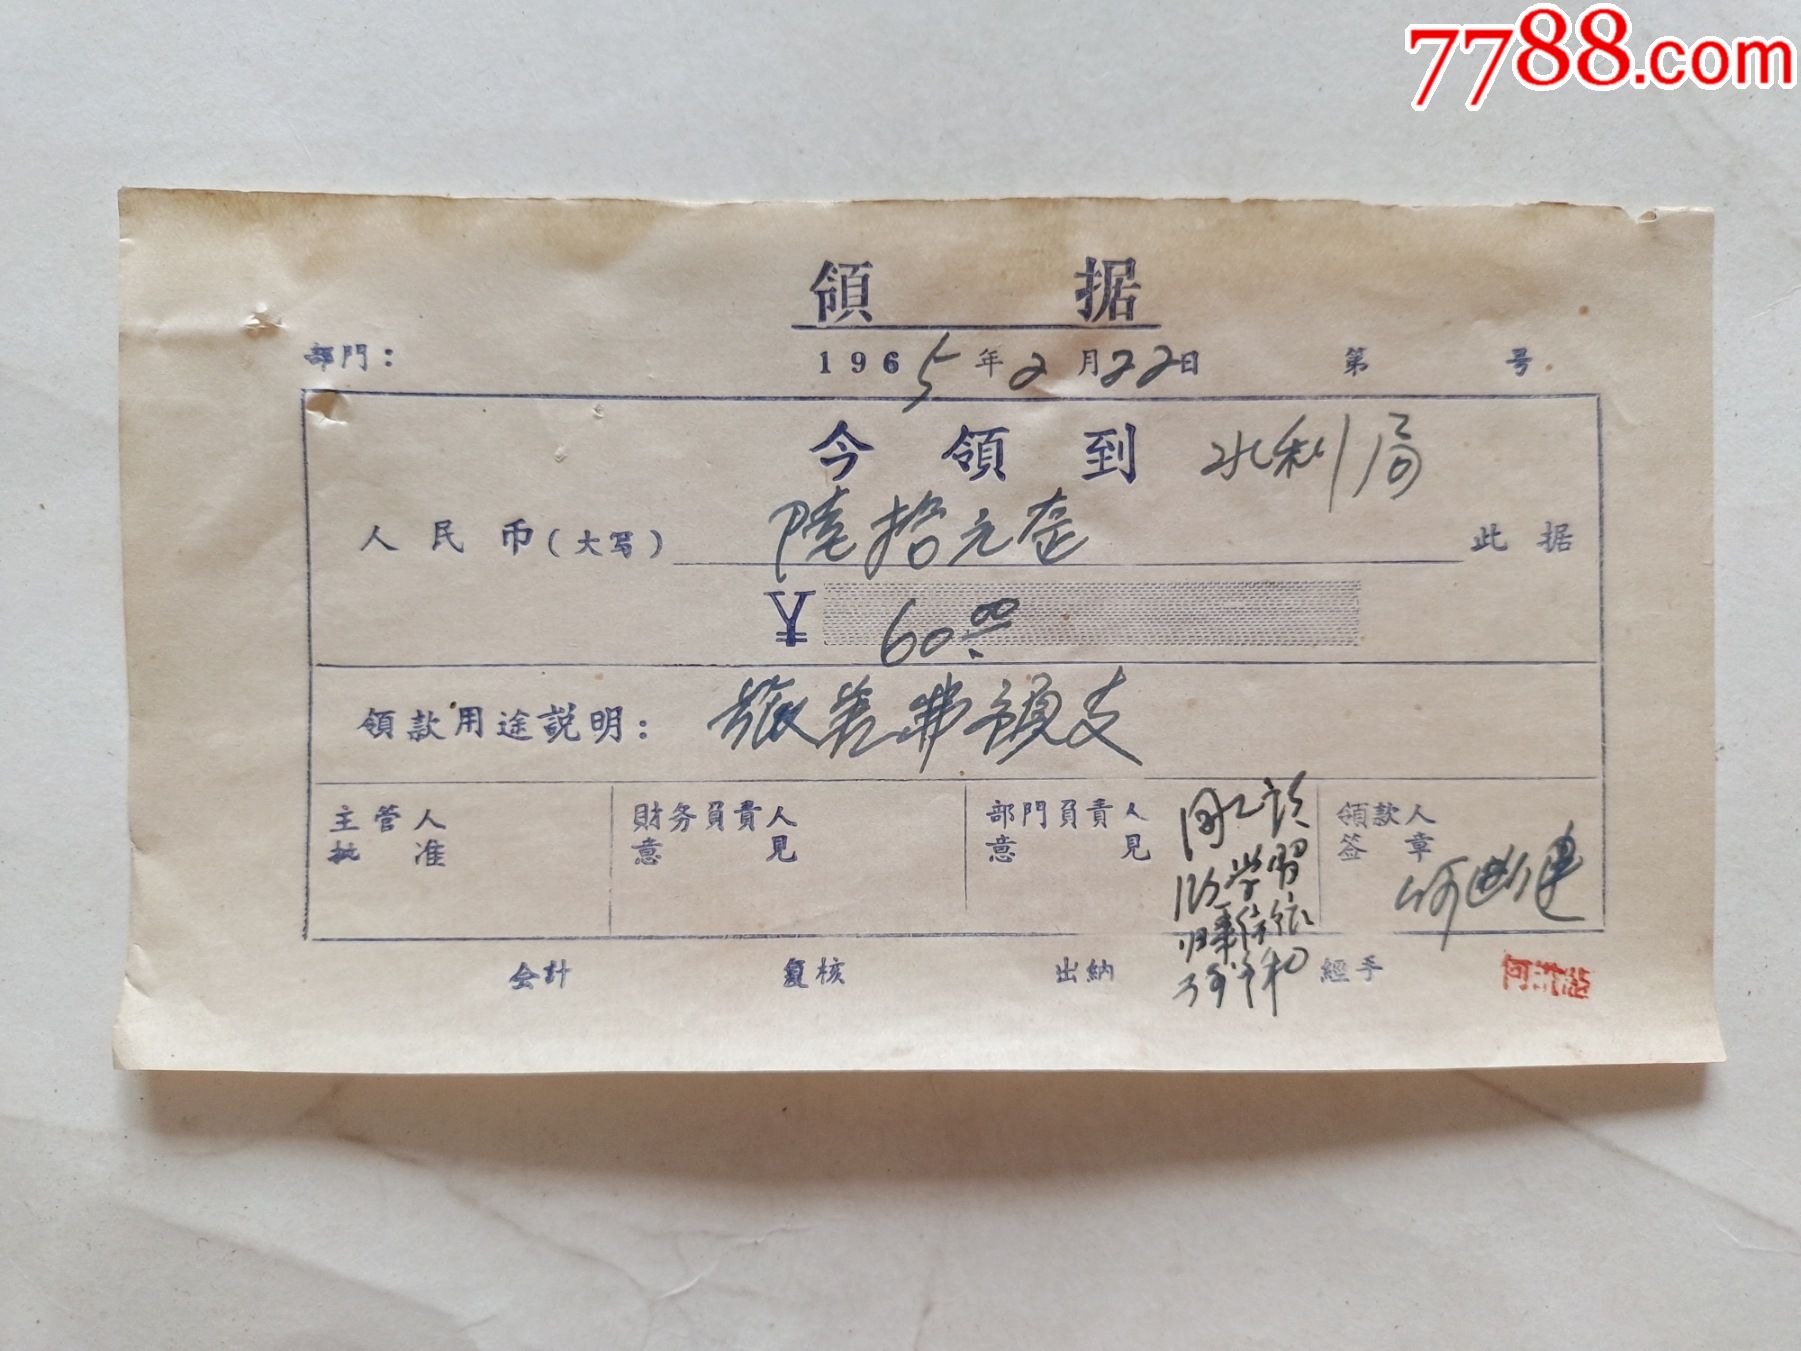 7788.com
領 据
部門： 1965年2月22日 第 号
今 領 到 水利局
人民币(大写) 陸拾元整 此据
¥ 60.00
領款用途説明： 旅差费预支
主管人批准
財务負責人意見
部門負責人意見
領款人签章
会計 复核 出納 經手